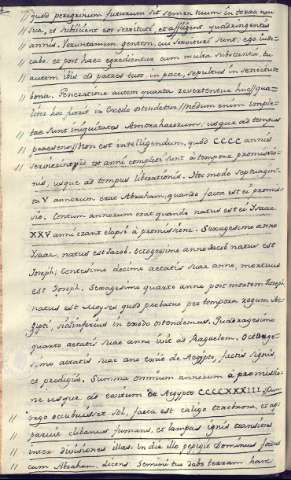 quod peregrinum futurum sit semen tuum in terra non
sua, et subiicient eos servituti, et affligent quadringentis
annis. Veruntamen gentem, cui servituri sunt, ego iudi-
cabo, et post haec egredientur cum multa substantia. Tu
autem ibis ad patres tuos in pace, sepultus in senectute
bona. Generatione autem quarta revertentur huc //quá-
liter hoc fuerit in Exodo ostendetur// necdum enim comple-
tae sunt iniquitates Amorrhaeorum, usque ad tempus
praesens// Non est intelligendum, quod CCCC annis
servituri et anni completi sint à tempore promissio-
nis, usque ad tempus liberationis. Hoc modo septuagin-
ta V annorum erat Abraham, quando facta est ei promis-
sio. Centum annorum erat quando natus est ei Isaac
XXV anni erant elapsi à promissione. Sexagesimo anno
Isaac, natus est Iacob. Octogesimo anno Iacob natus est
Ioseph, Centesimo decimo aetatis suae anno, mortuus
est Ioseph. Sexagesimo quarto anno, post mortem Ioseph,
natus est Moyses quod probatur per tempora regum Ae-
gypti, sicut in exodo ostendemus. Quadragesimo
quarto aetatis suae anno ivit ad Raguelem. Octoge-
simo aetatis suae anno exivit de Aegypto, factis signis
et prodigiis. Summa omnium annorum à promissio-
ne usque ad exitum de Aegypto CCCCXXXIII. Cum
ergo occubuisset sol, facta est caligo tenebrosa, et ap-
paruit clibanus fumans, et lampas ignis transiens
inter divisiones illas. In die illo pepigit Dominus foedus
cum Abraham, dicens. Semini tuo dabo terram hanc